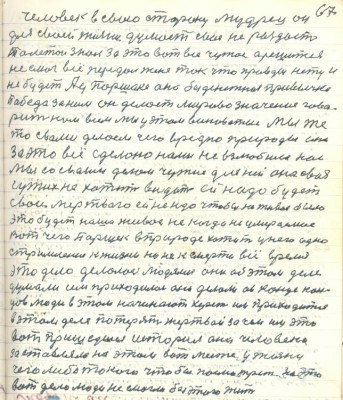 67
Человек в свою сторону мудрец он
для своей жизни думает свое не раздаст
за это вот все чужое
не смог всё передал жене так что правды нету и
не будет А
Победа за ним он делает мирово значение гово-
рить ним всем мы у этом виноватые Мы же
то сами делаем чего вредно природы она
За это всё сделано нами не возлюбила нас
мы со своим делом чужие для ней она свая
чужих не хотит видить ей надо будет
свои мертвого ей не надо чтобы живое было
это будет наше живое не когда не умираемое
вот чего в природе хотит у него одно
стремление к жизни но не к смерти всё время
это дело делалось людями они об этом деле
думали им приходилось они делали а конце кон-
цов люди в этом начинают им приходится
в этом деле потерять жертвой за чем им это
вот пришедшая история она человека
заставляла на этом вот месте у жизни
чего либо такого что бы посмотреть на это
вот дело люди не смогли без этого жить